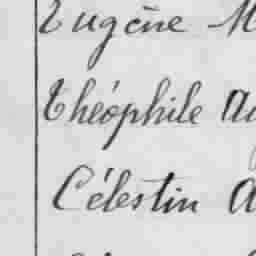 Eugène M
Théophile Au
Célestin A